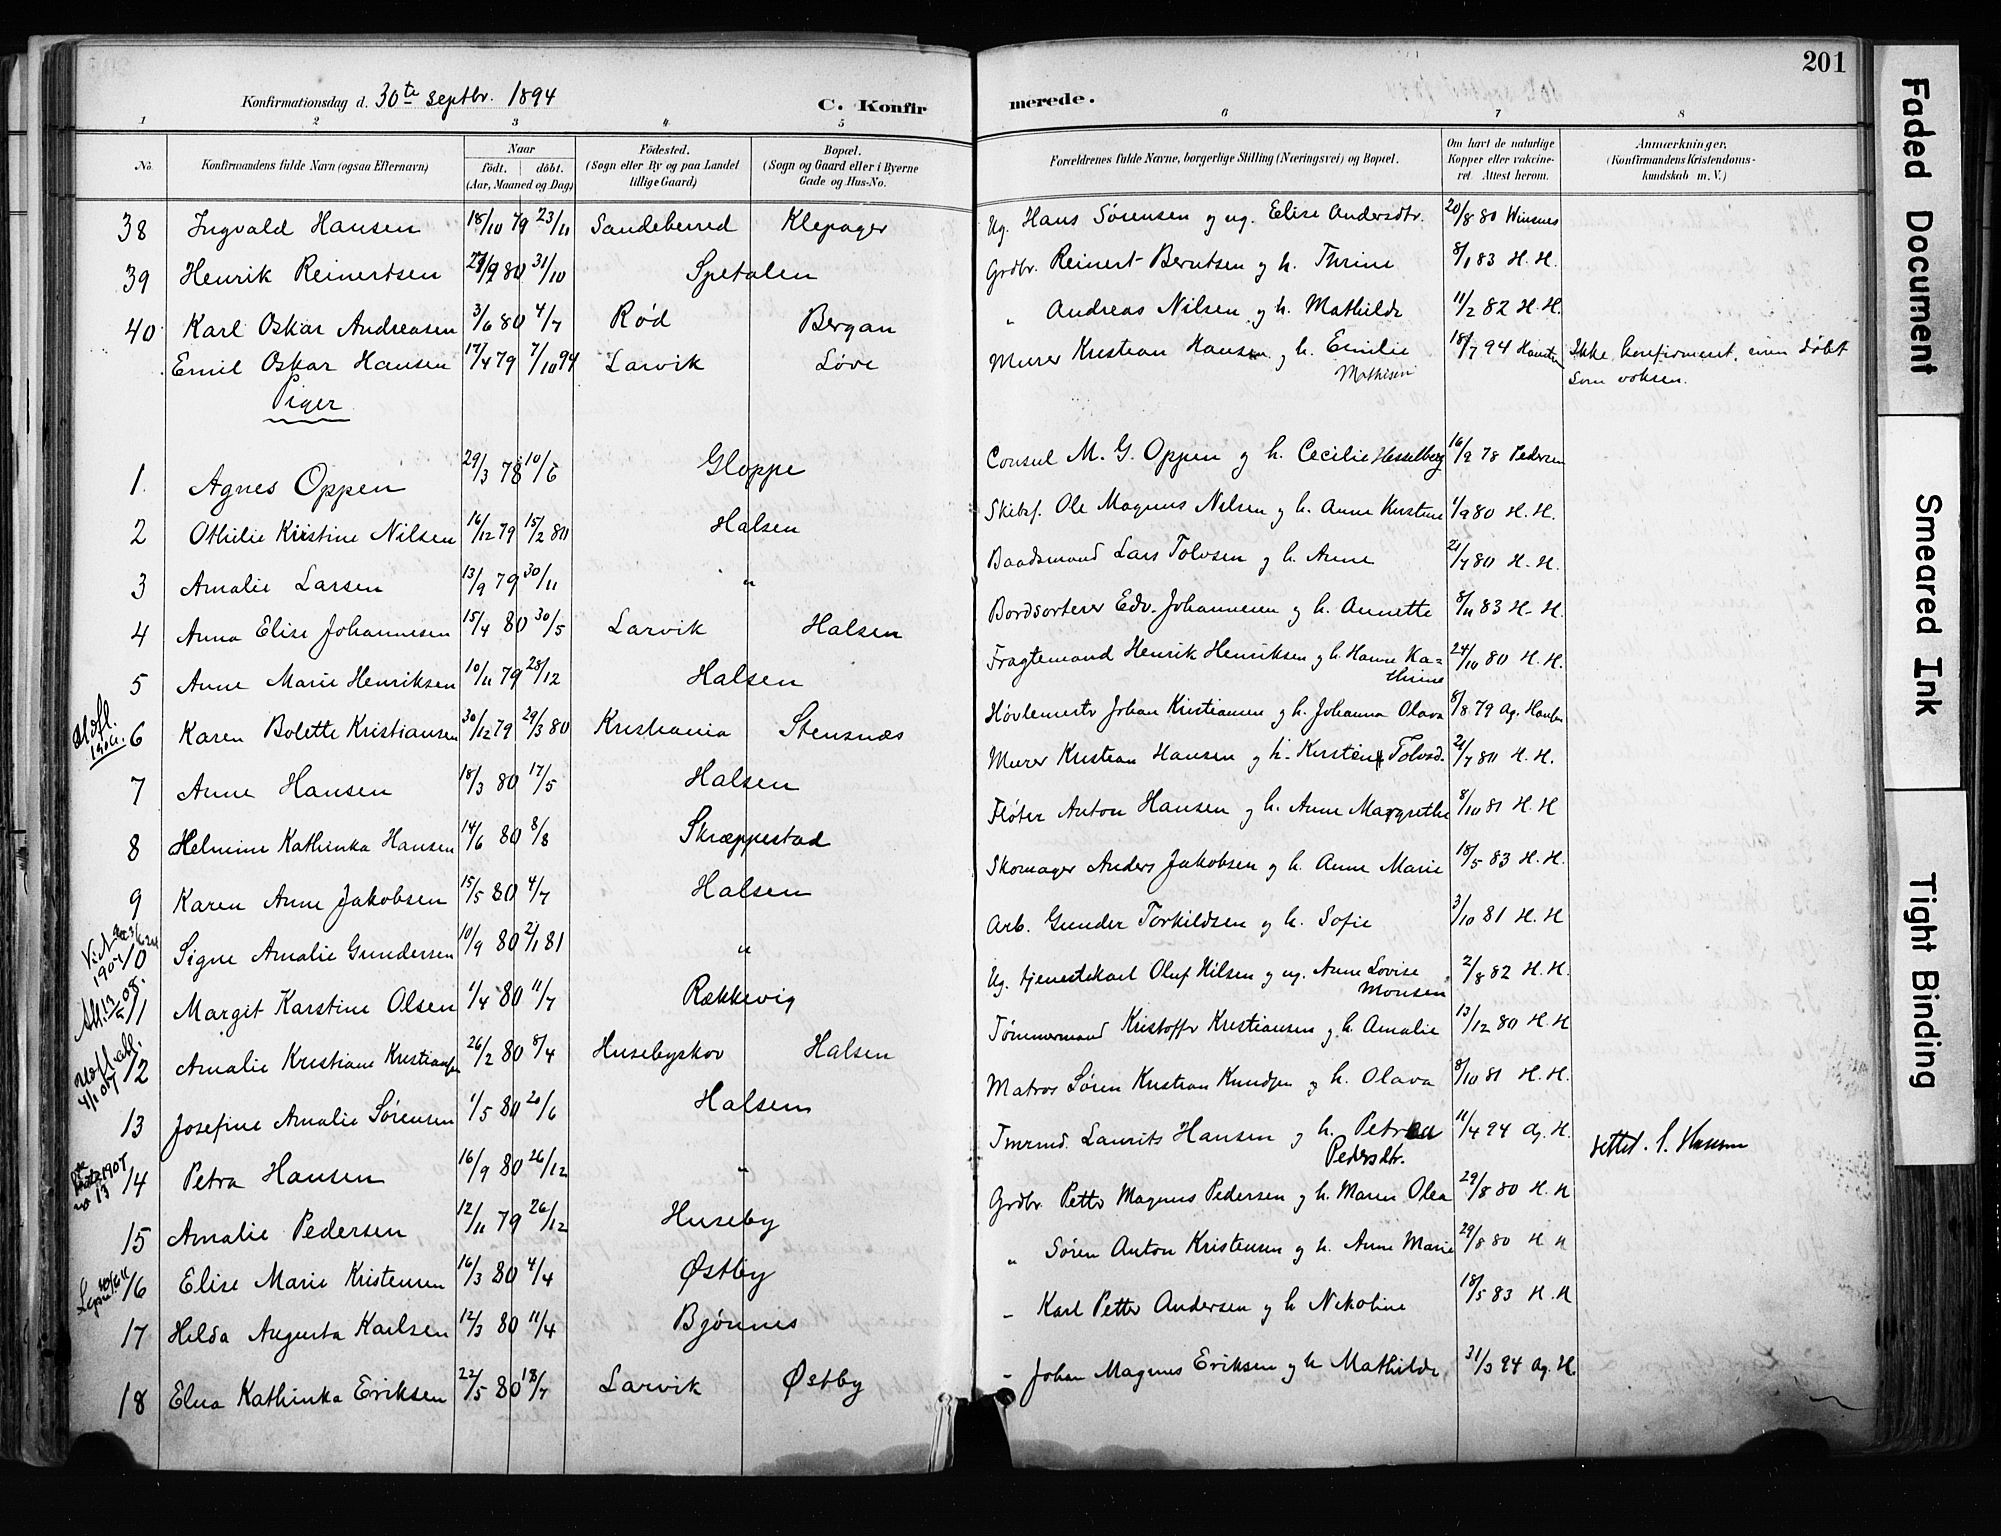 201
Konfirmationsdag d. 30te septbr. 1894 C. Konfirmerede.
1 2 3 4 5 6 7 8
No. Konfirmandens fulde Navn (ogsaa Efternavn) Naar födt. döbt. (Aar, Maaned og Dag) Födested. (Sogn eller By og paa Landet tillige Gaard) Bopæl. (Sogn og Gaard eller i Byerne Gade og Hus-No. Forældrenes fulde Navne, borgerlige Stilling (Næringsvei) og Bopæl. Om havt de naturlige Kopper eller vakcineret. Attest herom. Anmærkninger. (Konfirmandens Kristendomskundskab m. V.)
38 Ingvald Hansen 18/10 79 23/11 Sandeherred Klepager Ug. Hans Sørensen og ug. Elise Andersdtr. 20/8 80 Winsnes
39 Henrik Reinertsen 27/9 80 31/10 Spetalen Grdbr. Reinert Berntsen og h. Thrine 8/1 83 H. H.
40 Karl Oskar Andreasen 3/6 80 4/7 Rød Bergan " Andreas Nilsen og h. Mathilde 11/2 82 H. H.
Emil Oskar Hansen 17/4 79 7/10 94 Larvik Løve Murer Kristian Hansen og h. Emilie Mathisen 18/7 94 Ikke konfirmeret, men døbt
som voksen.
Piger
1. Agnes Oppen 29/3 78 10/6 Gloppe Consul M. G. Oppen og h. Cecilie Hesselberg 16/9 78 Pedersen
2 Othilie Kristine Nilsen 16/12 79 15/2 80 Halsen Skibsf. Ole Magnus Nilsen og h. Anne Kirstine 1/9 80 H. H.
3 Amalie Larsen 13/9 79 30/11 " Baadsmand Lars Tolvsen og h. Anne 21/7 80 H. H.
4 Anna Elise Johannesen 15/4 80 30/5 Larvik Halsen Bordsorterer Edv. Johannesen og h. Annette 8/11 83 H. H.
5 Anne Marie Henriksen 10/11 79 28/12 Halsen Fragtemand Henrik Henriksen og h. Hanne Ka=
thrine 24/10 80 H. H.
6 Karen Bolette Kristiansen 30/12 79 29/3 80 Kristiania Stensnæs Høvlemestr Johan Kristiansen og h. Johanna Olava 8/8 79 Ag.
7 Anne Hansen 18/3 80 17/5 Halsen Murer Kristian Hansen og h. Kirstine Tolvsd. 21/7 80 H. H.
8 Helmine Kathinka Hansen 14/6 80 8/8 Skræppestad Fløter Anton Hansen og h. Anne Margrethe 8/10 81 H. H
9 Karen Anne Jakobsen 15/5 80 4/7 Halsen Skomager Anders Jakobsen og h. Anne Marie 18/5 83 H. H.
10 Signe Amalie Gundersen 10/9 80 2/1 81 " Arb. Gunder Torkildsen og h. Sofie 3/10 81 H. H
11 Margit Karstine Olsen 1/4 80 11/7 Rækkevig Ug. tjenestekarl Oluf Nilsen og ug. Anne Lovise
Monsen 2/8 82 H. H.
12 Amalie Kristiane Kristiansen 26/2 80 8/4 Husebyskov Halsen Tømmermand Kristoffr Kristiansen og h. Amalie 13/12 80 H. H
13 Josefine Amalie Sørensen 1/5 80 20/6 Halsen Matros Søren Kristian Knudsen og h. Olava 8/10 81 H. H.
14 Petra Hansen 16/9 80 26/12 " Tmrmd. Laurits Hansen og h. Petrea
Pedersdtr. 11/4 94 Ag. H.
15 Amalie Pedersen 12/11 79 26/12 Huseby Grdbr. Petter Magnus Pedersen og h. Maren Olea 29/8 80 H. H
16 Elise Marie Kristensen 16/3 80 4/4 Østby " Søren Anton Kristensen og h. Anne Marie 29/8 80 H. H
17 Hilda Augusta Karlsen 12/3 80 11/4 Bjønnes - Karl Petter Andersen og h Nikoline 18/5 83 H. H
18 Elna Kathinka Eriksen 22/5 80 18/7 Larvik Østby - Johan Magnus Eriksen og h Mathilde 31/3 94 Ag. H.
Faded Document
Smeared Ink
Tight Binding